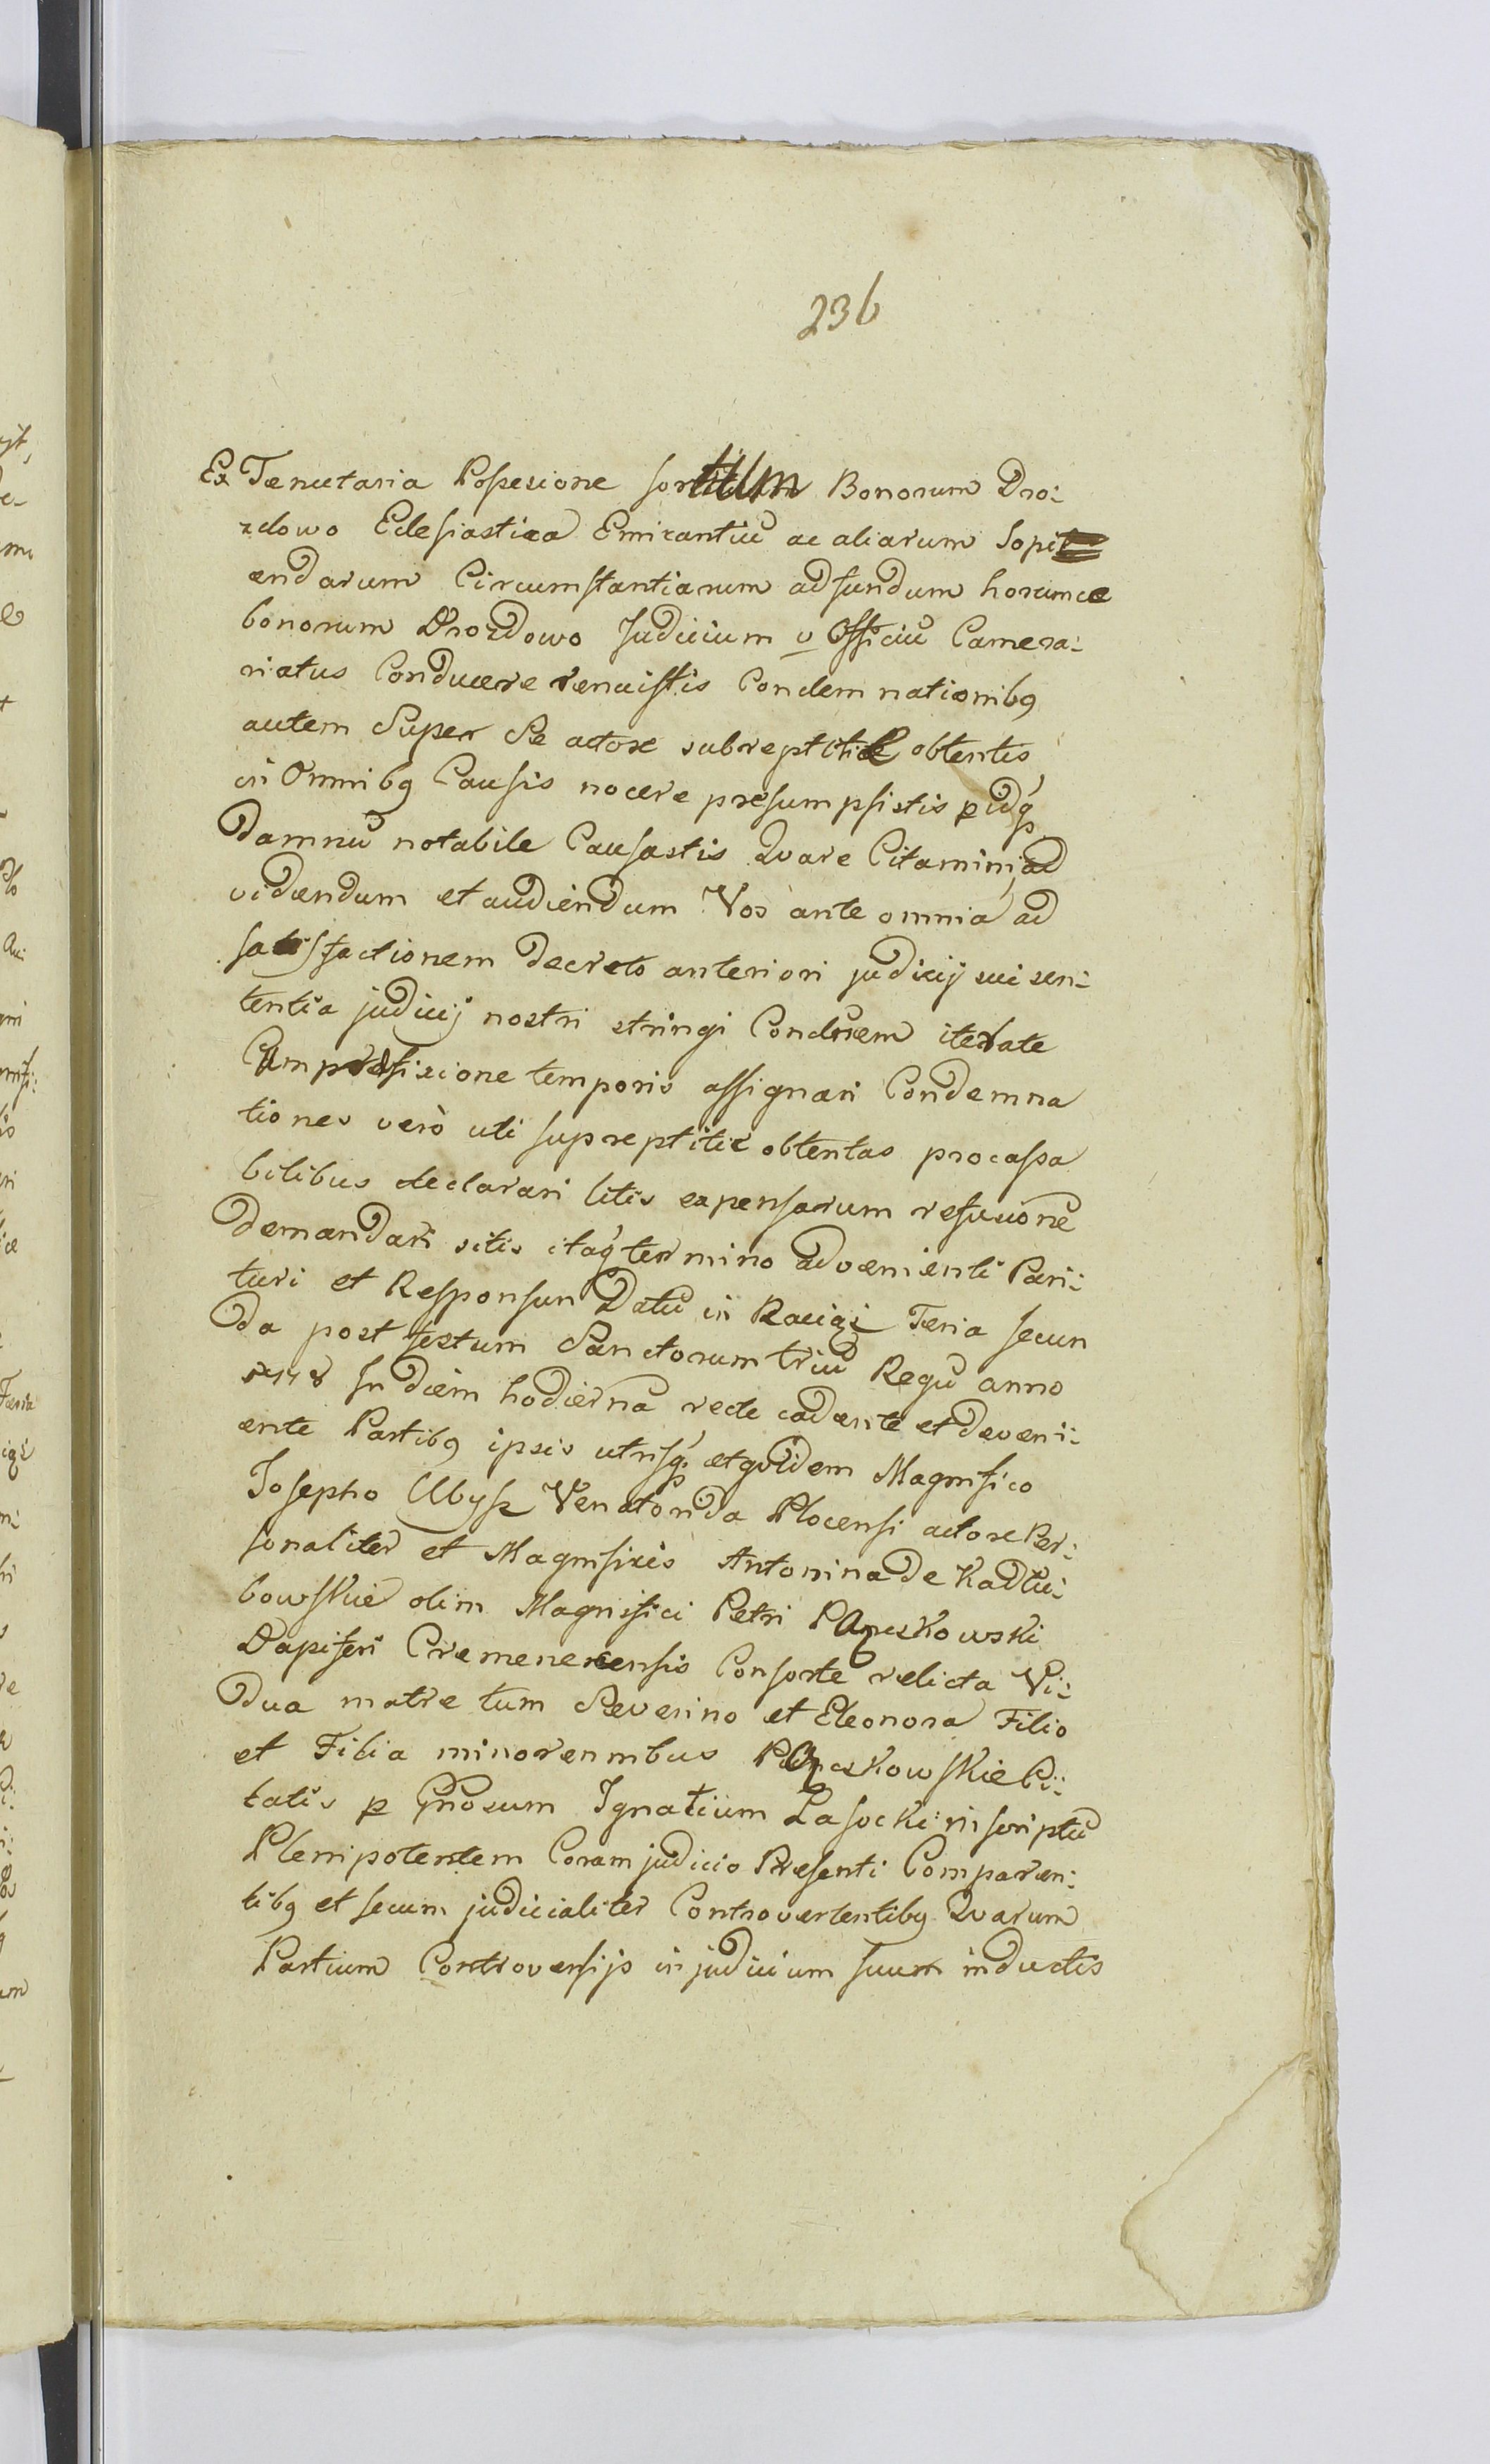 236
Ex Tenutaria Possesione sortium Bonorum Dro:
zdowo Eclesiastica Emirantiū ac aliarum Sopi
endarum Circumstantiarum ad fundum horumce
bonorum Drozdowo Judicium v Officiū Camera:
riatus Conducere renuistis Condemnationibq
autem Super Se actore subreptitie obtentis
in Omnibq Causis nocere presumpsistis p idq
Damnū notabile Causastis Qvare Citamini ad
videndum et audiendum Vos ante omnia ad
satisfactionem Decreto anteriori judicij sui sen:
tentia judicij nostri stringi Condnem iterate
Cum prefisicione temporis assignari Condemna
tiones verò uti supreptitie obtentas procassa
bilibus declarari litis expensarum refusionē
Demandari sitis itaq termino advenienti Pari:
turi et Responsuri Datū in Raciąż Feria secun
da post festum Sanctorum triū Regū anno
1778 In diem hodiernā recte cadente et deveni:
ente Partibq ipsis utrisq et qvidem Magnifico
Josepho Ubysz Venatorida Plocensi actore Per:
sonaliter et Magnificis Antonina de Kadłu:
bowskie olim Magnifici Petri Pąpeskowski
Dapiferi Cremenecensis Consorte relicta Vi:
dua matre tum Severino et Eleonora Filio
et Filia minorennibus Ci:
tatis p Gnosum Ignatium Lasocki in scriptū
Plenipotentem Coram judicio Presenti Comparen:
tibq et secum judicialiter Controvertentibq Qvarum
Partium Controversijs in judicium suum inductis